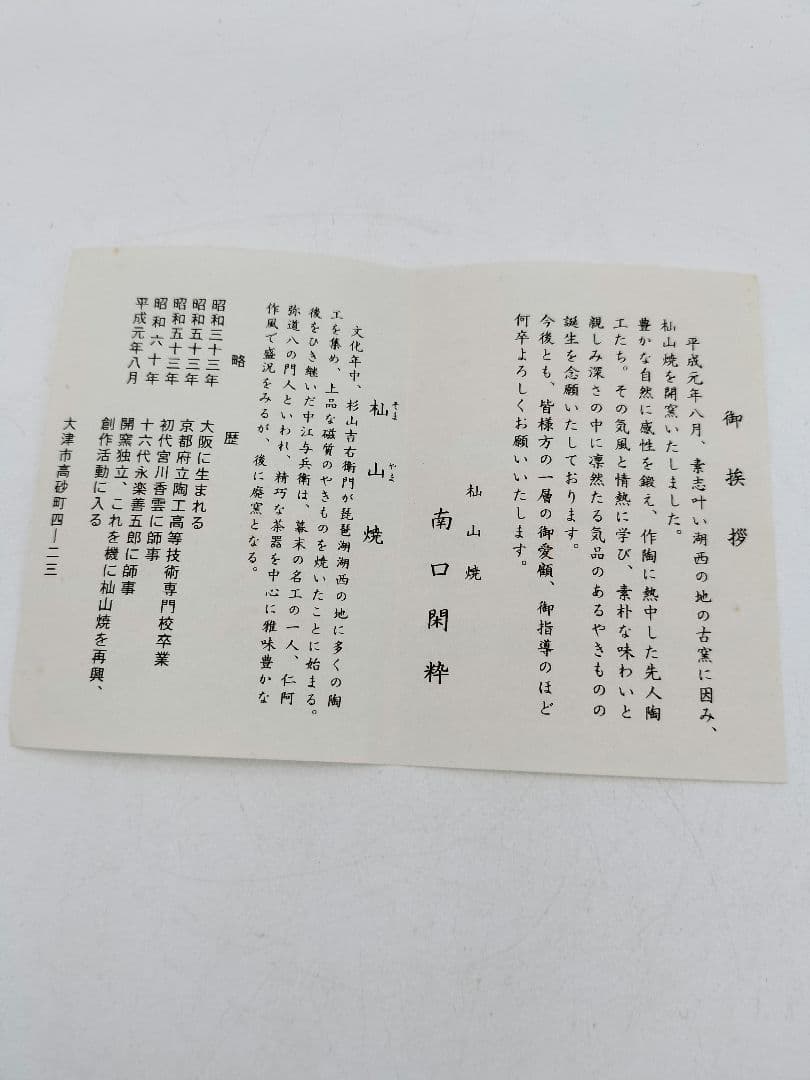 御挨拶
平成元年八月、素志叶い湖西の地の古窯に因み、
杣山焼を開窯いたしました。
豊かな自然に感性を鍛え、作陶に熱中した先人陶
工たち。その気風と情熱に学び、素朴な味わいと
親しみ深さの中に凛然たる気品のあるやきものの
誕生を念願いたしております。
今後とも、皆様方の一層の御愛顧、御指導のほど
何卒よろしくお願いいたします。
杣山焼
南口閑粋
杣山焼
そま やま
文化年中、杉山吉右衛門が琵琶湖湖西の地に多くの陶
工を集め、上品な磁質のやきものを焼いたことに始まる。
後をひき継いだ中江与兵衛は、幕末の名工の一人、仁阿
弥道八の門人といわれ、精巧な茶器を中心に雅味豊かな
作風で盛況をみるが、後に廃窯となる。
略歴
昭和三十三年 大阪に生まれる
昭和五十三年 京都府立陶工高等技術専門校卒業
昭和五十三年 初代宮川香雲に師事
昭和六十年 十六代永楽善五郎に師事
平成元年八月 開窯独立、これを機に杣山焼を再興、
創作活動に入る
大津市高砂町四—二三